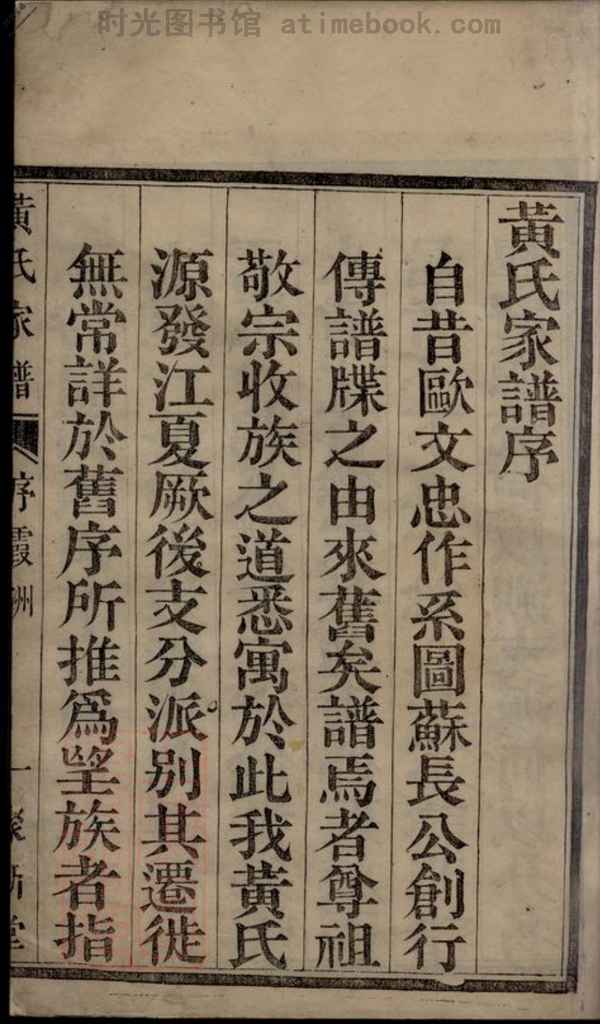 时光图书馆 atimebook.com
黃氏家譜序
自昔歐文忠作系圖蘇長公創行
傳譜牒之由來舊矣譜焉者尊祖
敬宗收族之道悉寓於此我黃氏
源發江夏厥後支分派別其遷徙
無常詳於舊序所推爲望族者指
黃氏家譜 序 霞洲 一